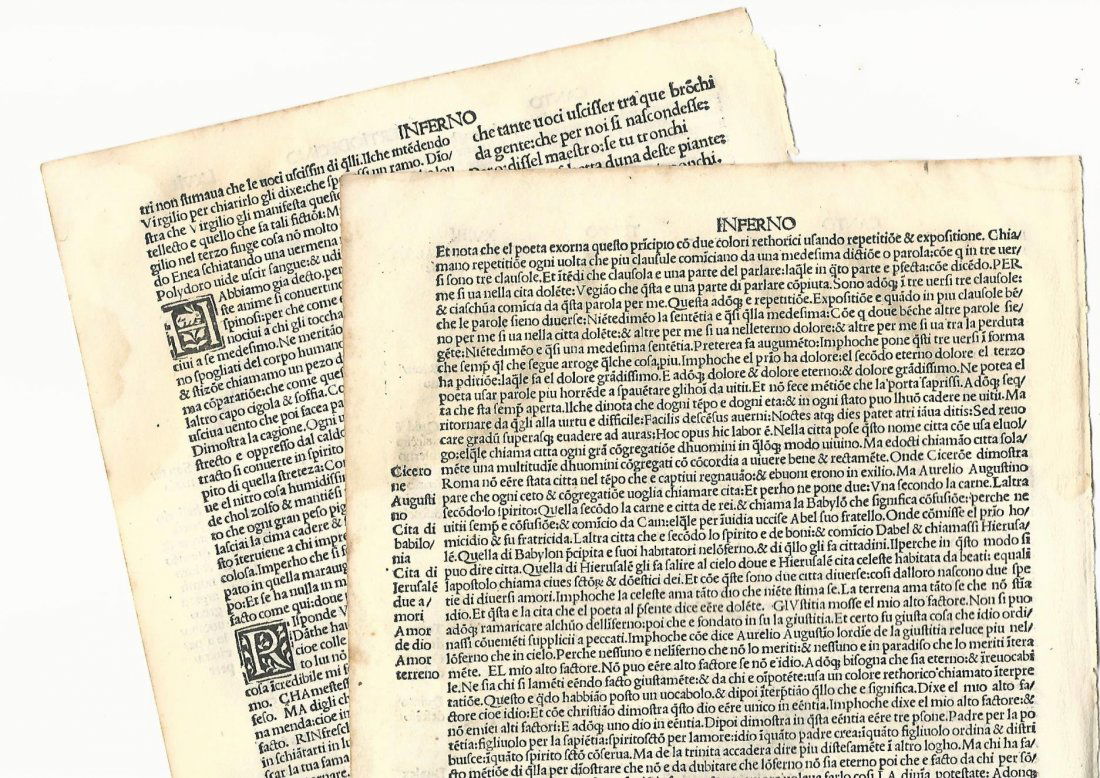 INFERNO
tri non stimaua che le uoci uscissin di q̃lli. Ilche ĩtẽdendo
Virgilio per chiarirlo gli dixe: che
un ramo. Dio/
stra che Virgilio gli manifesta questo
tellecto e quello che fa tali fictiõi: M
gilio nel terzo finge cosa nõ molto
do Enea schiatando una uermena
Polydoro uide uscir sangue: & udi
che tante uoci uscisser tra que brõchi
da gente: che per noi si nascondesse:
dissel maestro: se tu tronchi
duna deste piante:
HAbbiamo gia decto. per
ste anime si conuertino
spinosi: per che come e
nociui a chi gli toccha
ciui a se medesimo. Ne meritão
no spogliati del corpo humano
& stizõe chiamano un pezo d
ma cõparatiõe: che come ques
laltro capo cigola & soffia. Co
usciua uento che poi facea pa
Dimostra la cagione. Ogni u
strecto e oppresso dal caldo
tracto si conuerte in spirito
pito di quella streteza: Con
ue el nitro cosa humidissim
de chol zolfo & mantiesi
to che ogni gran peso pig
lasciai la cima cadere & s
sto iteruiene a chi impre
colosa. Imperho che si f
pato in quella marauig
po: Et se ha nulla in m
facto come qui: doue
RIsponde V
Dãthe hau
cioe colle
to lui nõ
cosa ĩcredibile mi f
mo. CHA mestess
feso. MA digli ch
na menda: cioe in
facto. RINfresch
in schiãrarti in lu
scar la tua fama
INFERNO
Et nota che el poeta exorna questo prĩcipio cõ due colori rethorici usando repetitiõe & expositione. Chia/
mano repetitiõe ogni uolta che piu clausule comĩciano da una medesima dictiõe o parola: cõe q̃ in tre uer/
si sono tre clausole: Et ĩtẽdi che clausola e una parte del parlare: laq̃le in q̃to parte e p̃fecta: cõe dicẽdo. PER
me si ua nella cita dolẽte: Vegião che q̃sta e una parte di parlare cõpiuta. Sono adõq̃ ĩ tre uersi tre clausole:
& ciaschũa comĩcia da q̃sta parola per me. Questa adõq̃ e repetitiõe. Expositiõe e quãdo in piu clausole bẽ/
che le parole sieno diuerse: Niẽtedimẽo la sentẽtia e q̃si q̃lla medesima: Cõe q̃ doue bẽche altre parole sie/
no per me si ua nella citta dolẽte: & altre per me si ua nelleterno dolore: & altre per me si ua tra la perduta
gẽte: Niẽtedimẽo e q̃si una medesima sentẽtia. Preterea fa augumẽto: Imphoche pone q̃sti tre uersi ĩ forma
che semp̃ q̃l che segue arroge q̃lche cosa, piu. Imphoche el prĩo ha dolore: el secõdo eterno dolore el terzo
ha pditiõe: laq̃le fa el dolore grãdissimo. E adõq̃ dolore & dolore eterno: & dolore grãdissimo. Ne potea el
poeta usar parole piu horrẽde a spauẽtare glihoĩ da uitii. Et nõ fece mẽtiõe che la porta saprissi. Adõq̃ seq̃/
ta che sta semp̃ aperta. Ilche dinota che dogni tẽpo e dogni eta: & in ogni stato puo lhuõ cadere ne uitii. Ma
ritornare da q̃gli alla uirtu e difficile: Facilis descẽsus auerni: Noctes atq̃ dies patet atri iãua ditis: Sed reuo
care gradũ superasq̃ euadere ad auras: Hoc opus hic labor ẽ. Nella citta pose q̃sto nome citta cõe usa eluol/
go: elq̃le chiama citta ogni grã cõgregatiõe dhuomini in q̃loq̃ modo uiuino. Ma edocti chiamão citta sola/
mẽte una multitudĩe dhuomini cõgregati cõ cõcordia a uiuere bene & rectamẽte. Onde Cicerõe dimostra
Roma nõ eẽre stata citta nel tẽpo che e captiui regnauão: & ebuoni erono in exilio. Ma Aurelio Augustino
pare che ogni ceto & cõgregatiõe uoglia chiamare cita: Et perho ne pone due: Vna secondo la carne. Laltra
secõdo lo spirito: Quella secõdo la carne e citta de rei. & chiama la Babylõ che significa cõfusiõe: perche ne
uitii semp̃ e cõfusiõe: & comĩcio da Cain: elq̃le per ĩuidia uccise Abel suo fratello. Onde cõmisse el prĩo ho/
micidio & fu fratricida. Laltra citta che e secõdo lo spirito e de boni: & comĩcio Dabel & chiamassi Hierusa/
lẽ. Quella di Babylon p̃cipita e suoi habitatori nelõferno. & di q̃llo gli fa cittadini. Ilperche in q̃sto modo si
puo dire citta. Quella di Hierusalẽ gli fa salire al cielo doue e Hierusalẽ cita celeste habitata da beati: equali
lapostolo chiama ciues sctõ℞ & dõestici dei. Et cõe q̃ste sono due citta diuerse: cosi dalloro nascono due spe
tie di diuersi amori. Imphoche la celeste ama tãto dio che niẽte stima se. La terrena ama tãto se che nõ stĩa
idio. Et q̃sta e la cita che el poeta al p̃sente dice eẽre dolẽte. GIVstitia mosse el mio alto factore. Non si puo
adõq̃ ramaricare alchũo dellĩferno: poi che e fondato in su la giustitia. Et certo fu giusta cosa che idio ordi/
nassi cõueniẽti supplicii a peccati. Imphoche cõe dice Aurelio Augustĩo lordĩe de la giustitia reluce piu nel/
lõferno che in cielo. Perche nessuno e nelĩferno che nõ lo meriti: & nessuno e in paradiso che lo meriti ĩtera
mẽte. EL mio alto factore. Nõ puo eẽre alto factore se nõ e ĩdio. Adõq̃ bisogna che sia eterno: & ĩreuocabi
le. Ne sia chi si lamẽti eẽndo facto giustamẽte: & da chi e oĩpotẽte: usa un colore rethorico chiamato ĩterpre
tatiõe. Questo e q̃do habbião posto un uocabolo: & dipoi ĩterp̃tião q̃llo che e significa. Dixe el mio alto fa/
ctore cioe idio: Et cõe christião dimostra q̃sto dio eẽre unico in eẽntia. Imphoche dixe el mio alto factore: &
nõ emiei alti factori: E adõq̃ uno dio in eẽntia. Dipoi dimostra in q̃sta eẽntia eẽre tre psone. Padre per la po
tẽtia: figliuolo per la sapiẽtia: spiritosctõ per lamore: idio ĩquãto padre crea: iquãto figliuolo ordina & distri
busce: iquãto spirito sctõ cõserua. Ma de la trinita accadera dire piu distesamẽte ĩ altro logho. Ma chi ha fa/
cto mẽtiõe di q̃lla per dĩostrare che nõ e da dubitare che lõferno nõ sia eterno poi che e facto da chi per
Cicero
ne
Augusti
no
Cita di
babilo/
nia
Cita di
Ierusalẽ
due a/
mori
Amor
de dio
Amor
terreno